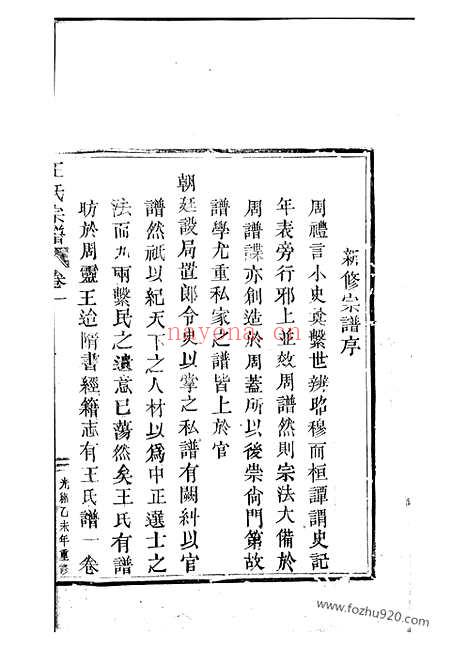 新修宗譜序
周禮言小史奠繫世辨昭穆而桓譚謂史記
年表旁行邪上並效周譜然則宗法大備於
周譜諜亦創造於周蓋所以後崇尙門第故
譜學尤重私家之譜皆上於官
朝廷設局置郎令史以掌之私譜有闕糾以官
譜然祇以紀天下之人材以爲中正選士之
法而九兩繫民之遺意已蕩然矣王氏有譜
昉於周靈王迨隋書經籍志有王氏譜一卷
王氏宗譜 卷一
光緒乙未年重修
nayona.cn
www.fozhu920.com